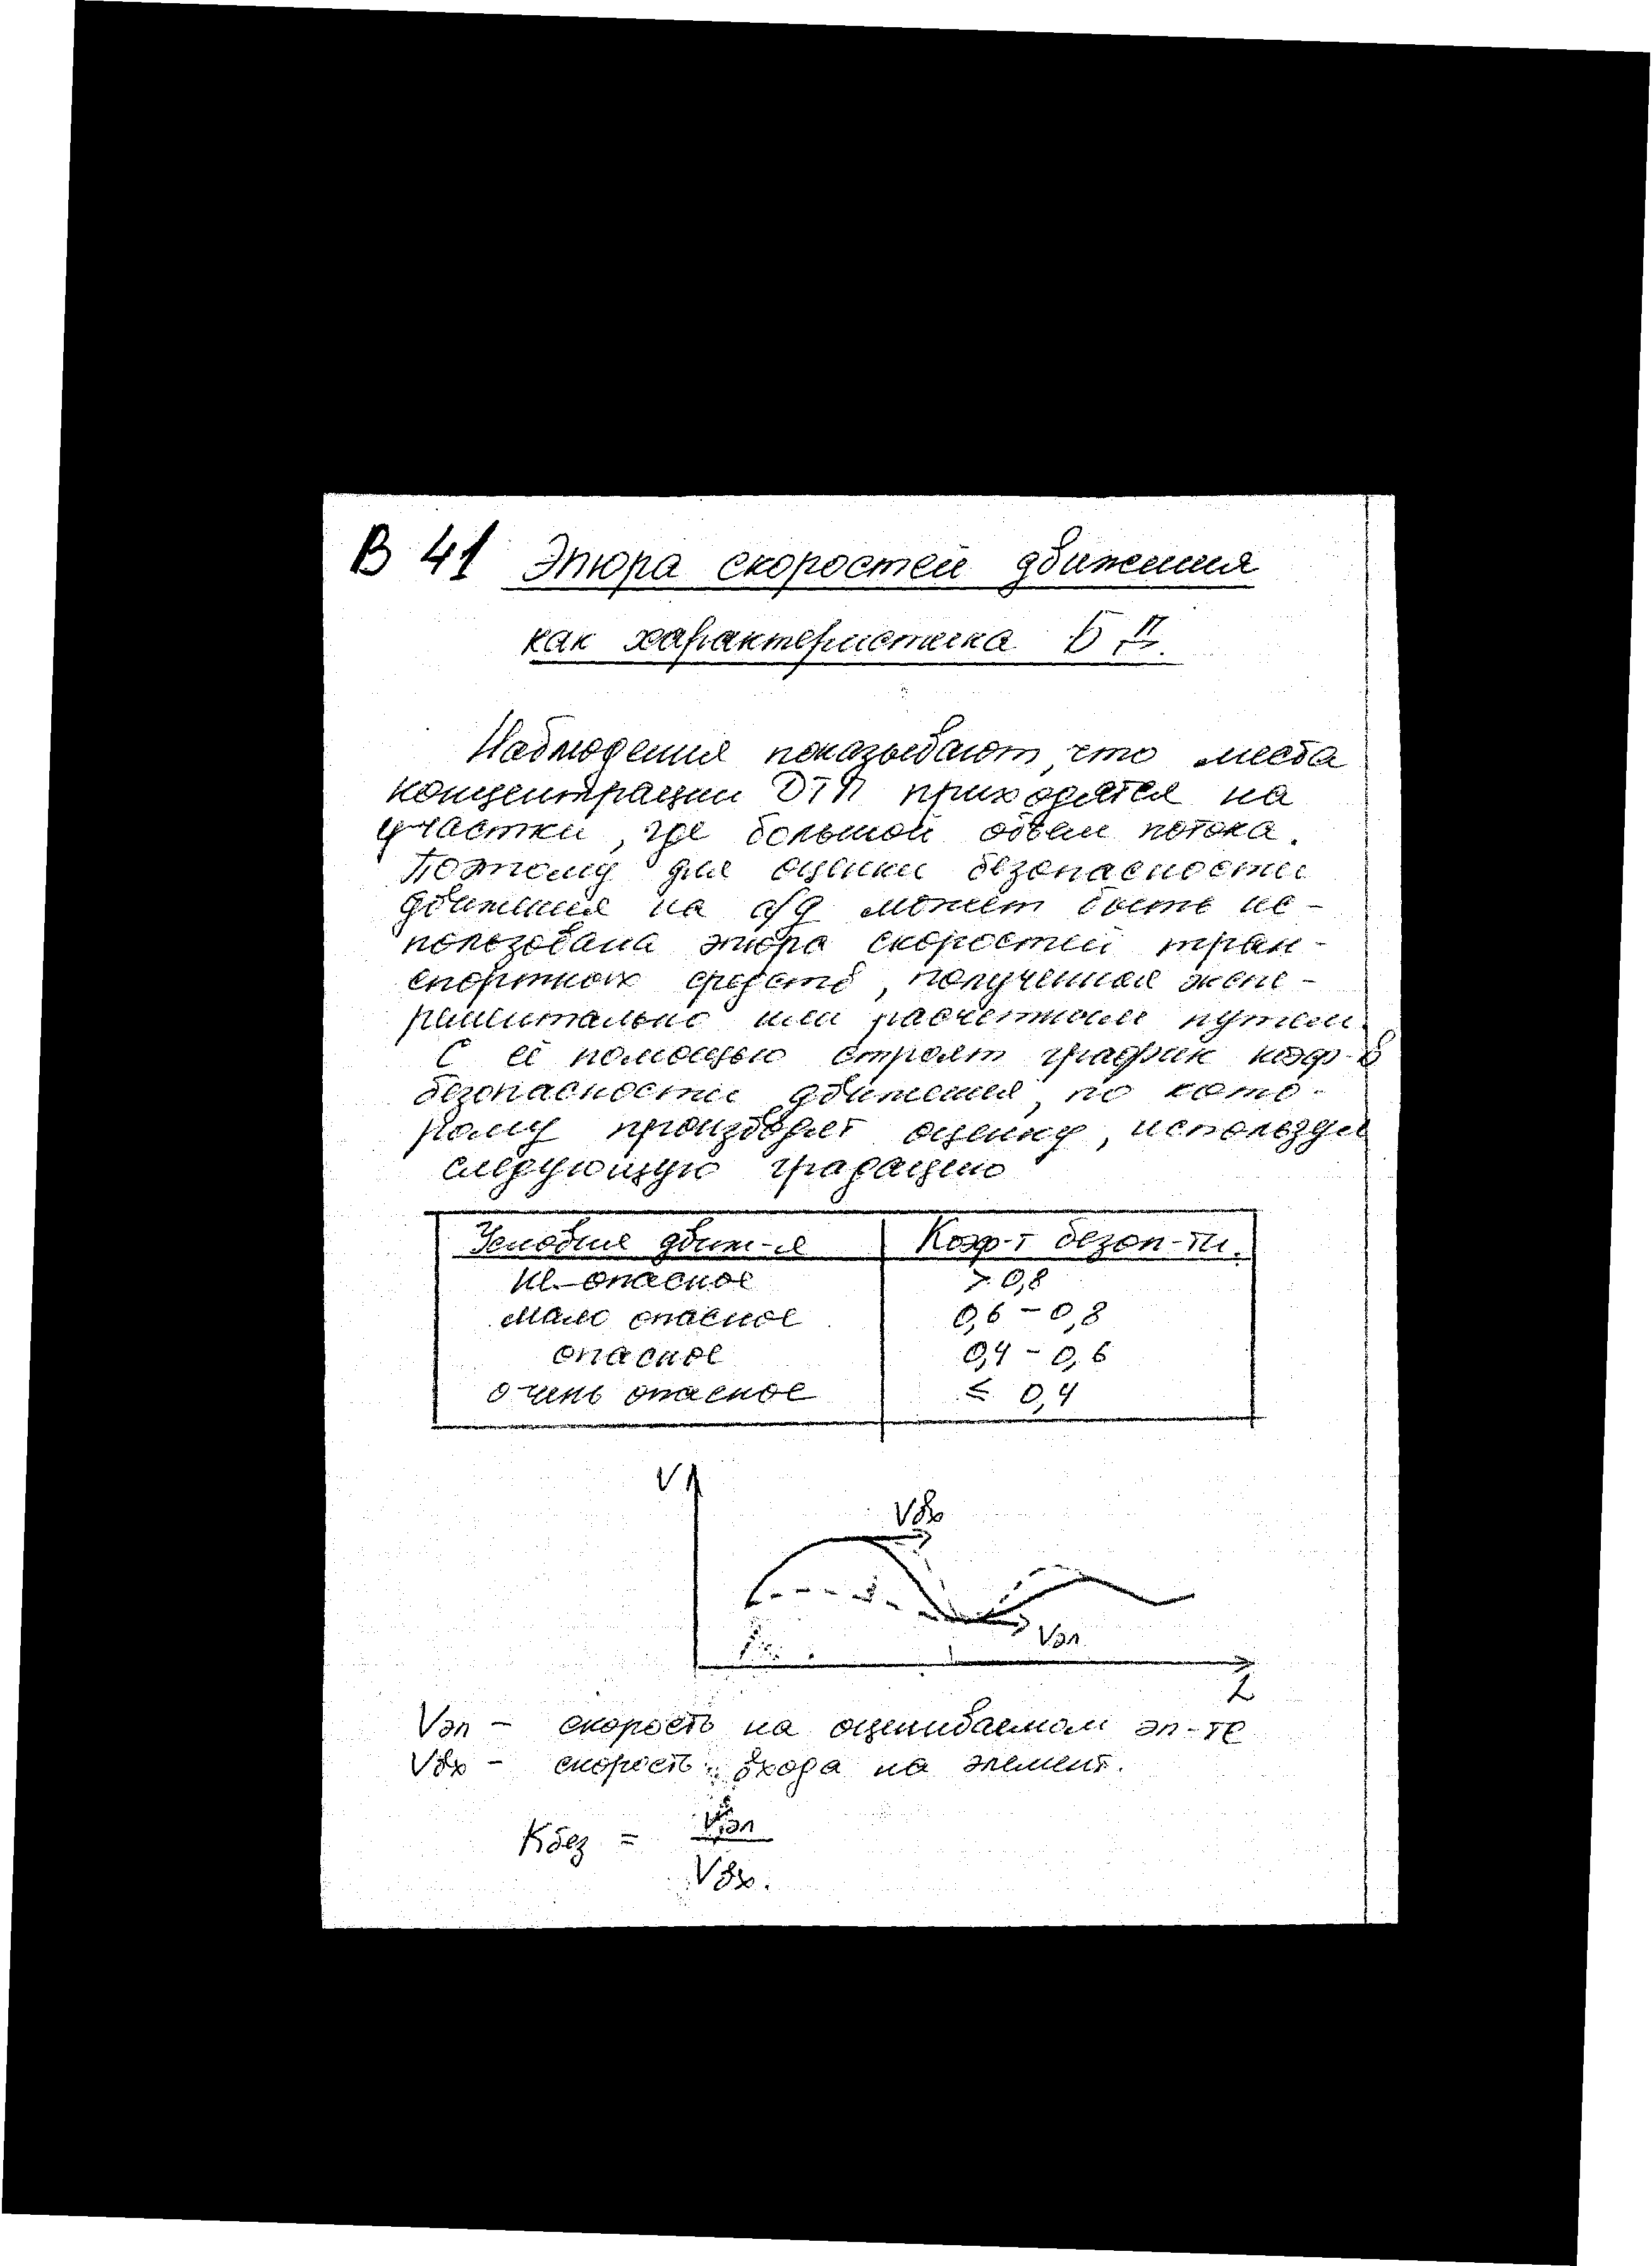 В 41 Эпюра скоростей движения
как характеристика Б Д.
Наблюдения показывают, что места
концентрации ДТП приходятся на
участки, где большой объем потока.
Поэтому для оценки безопасности
движения на а/д может быть ис-
пользована эпюра скоростей тран-
спортных средств, полученная экспе-
риментально или расчетным путем.
С её помощью строят график коэф-в
безопасности движения, по кото-
рому производят оценку, используя
следующую градацию
Условия движ-я Коэф-т безоп-ти.
не опасное > 0,8
мало опасное 0,6 - 0,8
опасное 0,4 - 0,6
очень опасное ≤ 0,4
V
Vвх
Vэл
L
Vэл - скорость на оцениваемом эл-те
Vвх - скорость входа на элемент.
Kбез = Vэл
Vвх.